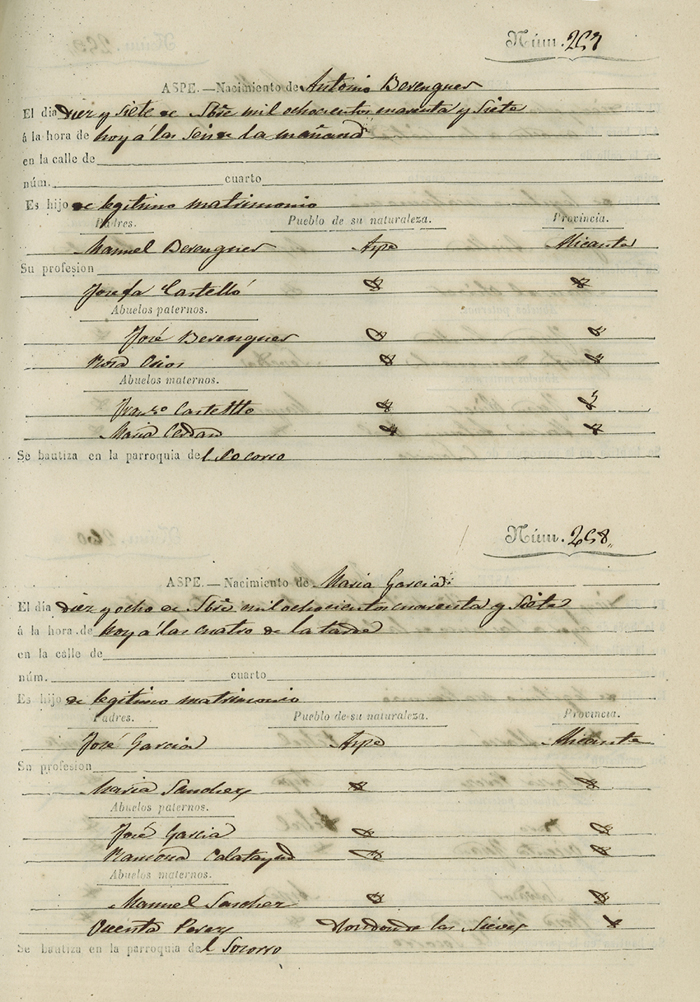 Núm. 257
ASPE.—Nacimiento de Antonio Berenguer
El dia diez y siete de Sbre mil ochocientos cuarenta y siete
á la hora de hoy á las seis de la mañana
en la calle de
núm. cuarto
Es hijo de legitimo matrimonio
Padres. Pueblo de su naturaleza. Provincia.
Manuel Berenguer Aspe Alicante
Su profesion
Josefa Castelló
Abuelos paternos.
José Berenguer
Rosa
Abuelos maternos.
Franco Castelló
Maria Cerdan
Se bautiza en la parroquia del Socorro
Núm. 258
ASPE.—Nacimiento de Maria Garcia
El dia diez y ocho de Sbre mil ochocientos cuarenta y siete
á la hora de hoy á las cuatro de la tarde
en la calle de
núm. cuarto
Es hijo de legitimo matrimonio
Padres. Pueblo de su naturaleza. Provincia.
José Garcia Aspe Alicante
Su profesion
Maria Sanchez
Abuelos paternos.
José Garcia
Ramona Calatayud
Abuelos maternos.
Manuel Sanchez
Vicenta Perez Hondon de las Nieves
Se bautiza en la parroquia del Socorro